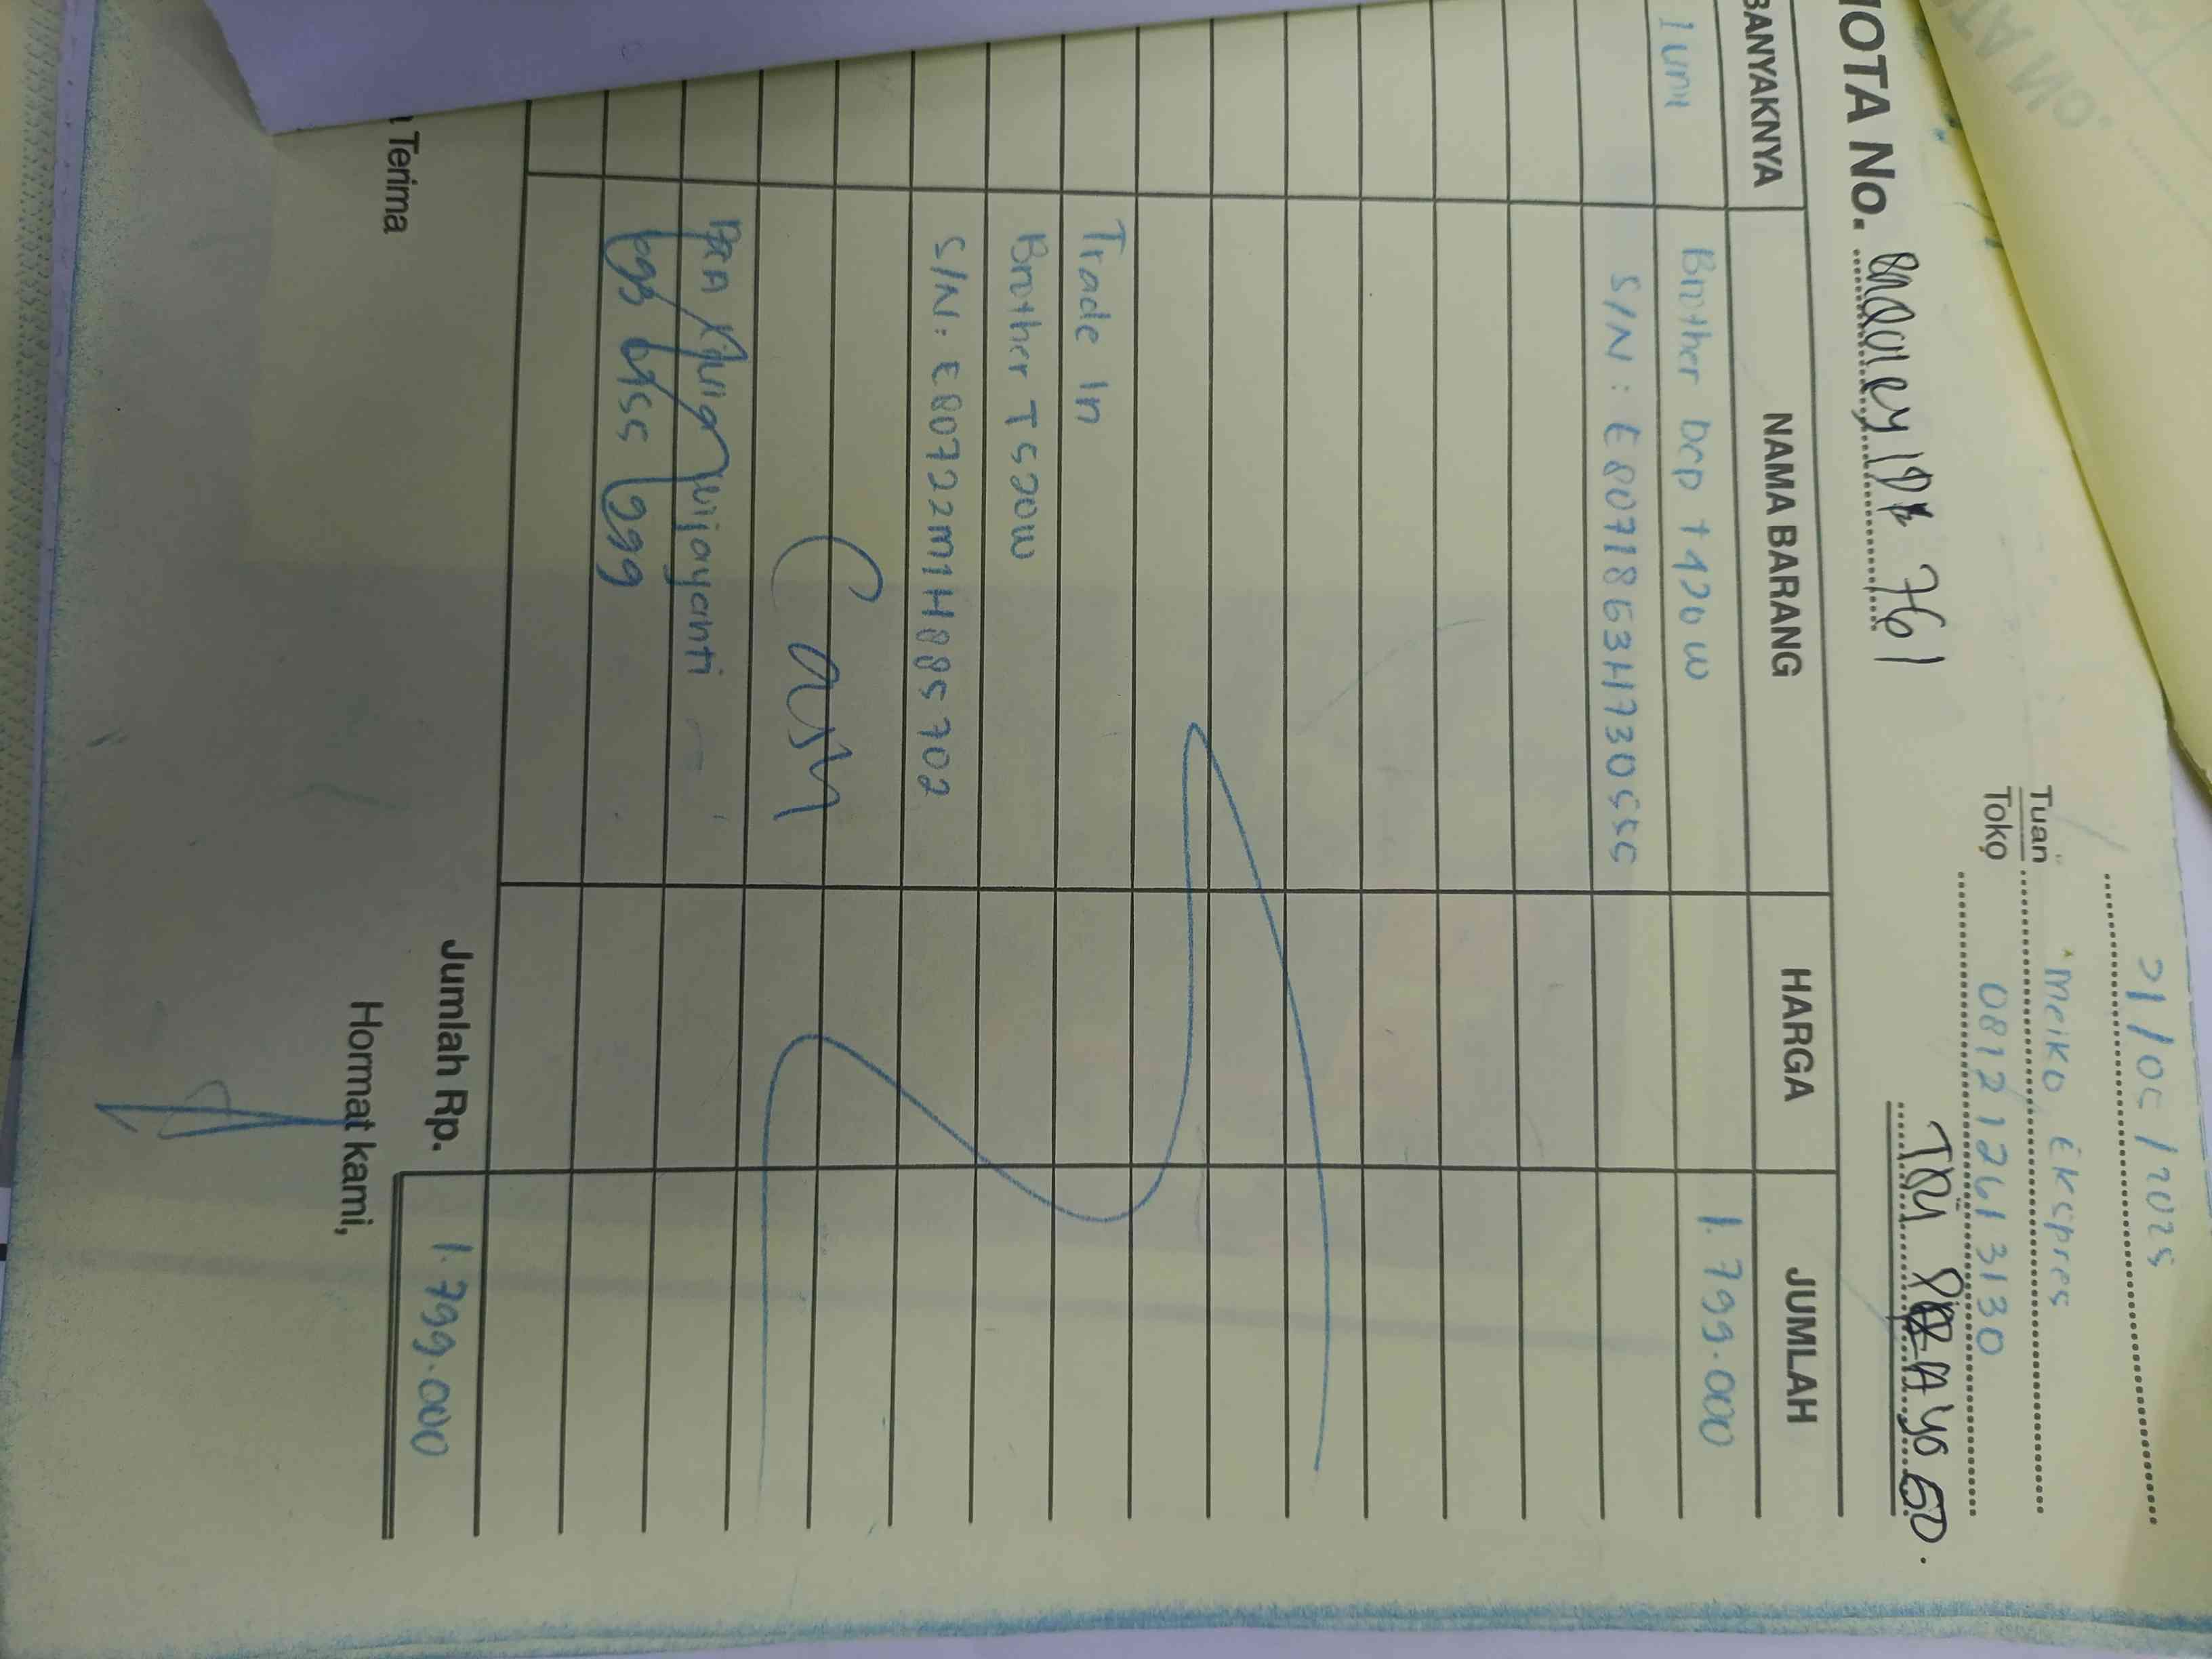 21/05/2025
Tuan Meiko Ekspres
Toko 0812 1261 3130
NOTA No. 761
BANYAKNYA NAMA BARANG HARGA JUMLAH
1 Unit Brother DCP T420W 1.799.000
S/N : E80718G3H730555
Trade In
Brother T520W
S/N: E80722M1H885702
Cash
BCA Wijayanti
Terima
Jumlah Rp. 1.799.000
Hormat kami,